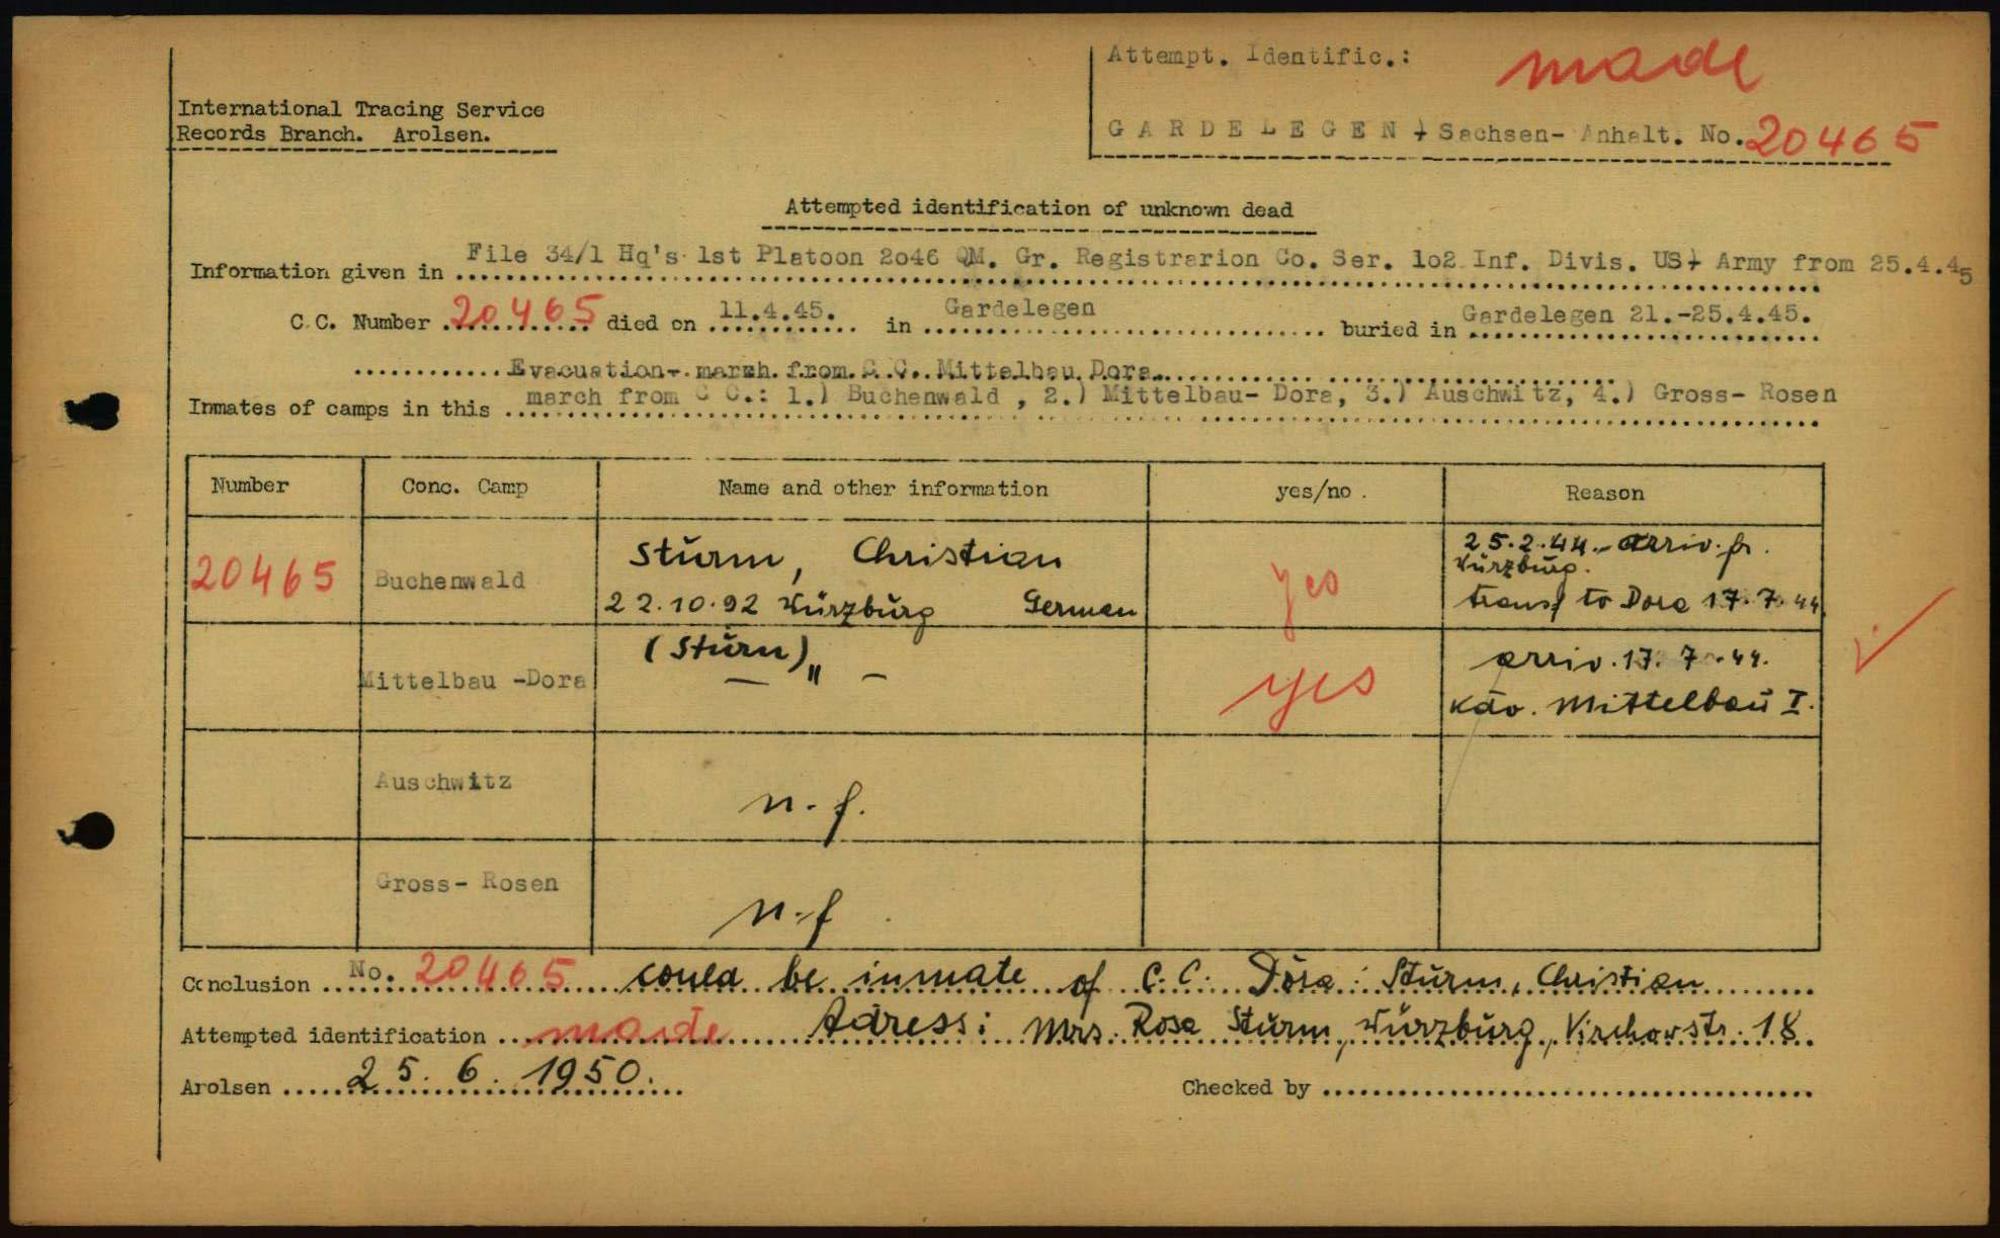 Attempt. Identific.: made
International Tracing Service
Records Branch. Arolsen.
GARDELEGEN, Sachsen-Anhalt. No. 20465
Attempted identification of unknown dead
Information given in File 34/1 Hq's 1st Platoon 2o46 QM. Gr. Registrarion Co. Ser. 1o2 Inf. Divis. US Army from 25.4.45
C.C. Number 20465 died on 11.4.45. in Gardelegen buried in Gardelegen 21.-25.4.45.
Evacuation- marsh from C.C. Mittelbau Dora
Inmates of camps in this march from C C.: 1.) Buchenwald , 2.) Mittelbau- Dora, 3.) Auschwitz, 4.) Gross- Rosen
Number Conc. Camp Name and other information yes/no . Reason
20465 Buchenwald Stŭrm, Christian yes 25.2.44.- arriv. fr.
Würzbŭrg.
22.10.92 Würzbŭrg German transf to Dora 17.7.44
Mittelbau -Dora (Stŭrn) — " — yes arriv. 17.7.44.
Kdo. Mittelbaŭ I.
Auschwitz n.f.
Gross- Rosen n.f
Conclusion No. 20465 could be inmate of C.C. Dora: Stŭrm, Christian
Attempted identification made Adress: Mrs. Rosa Stŭrm, Würzbŭrg, Virchowstr. 18
Arolsen 25. 6. 1950. Checked by